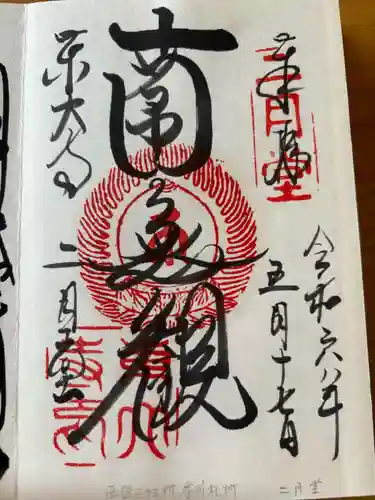 奉拝
二月堂
令和六年
五月十七日
南無観
東大寺
二月堂
二月堂